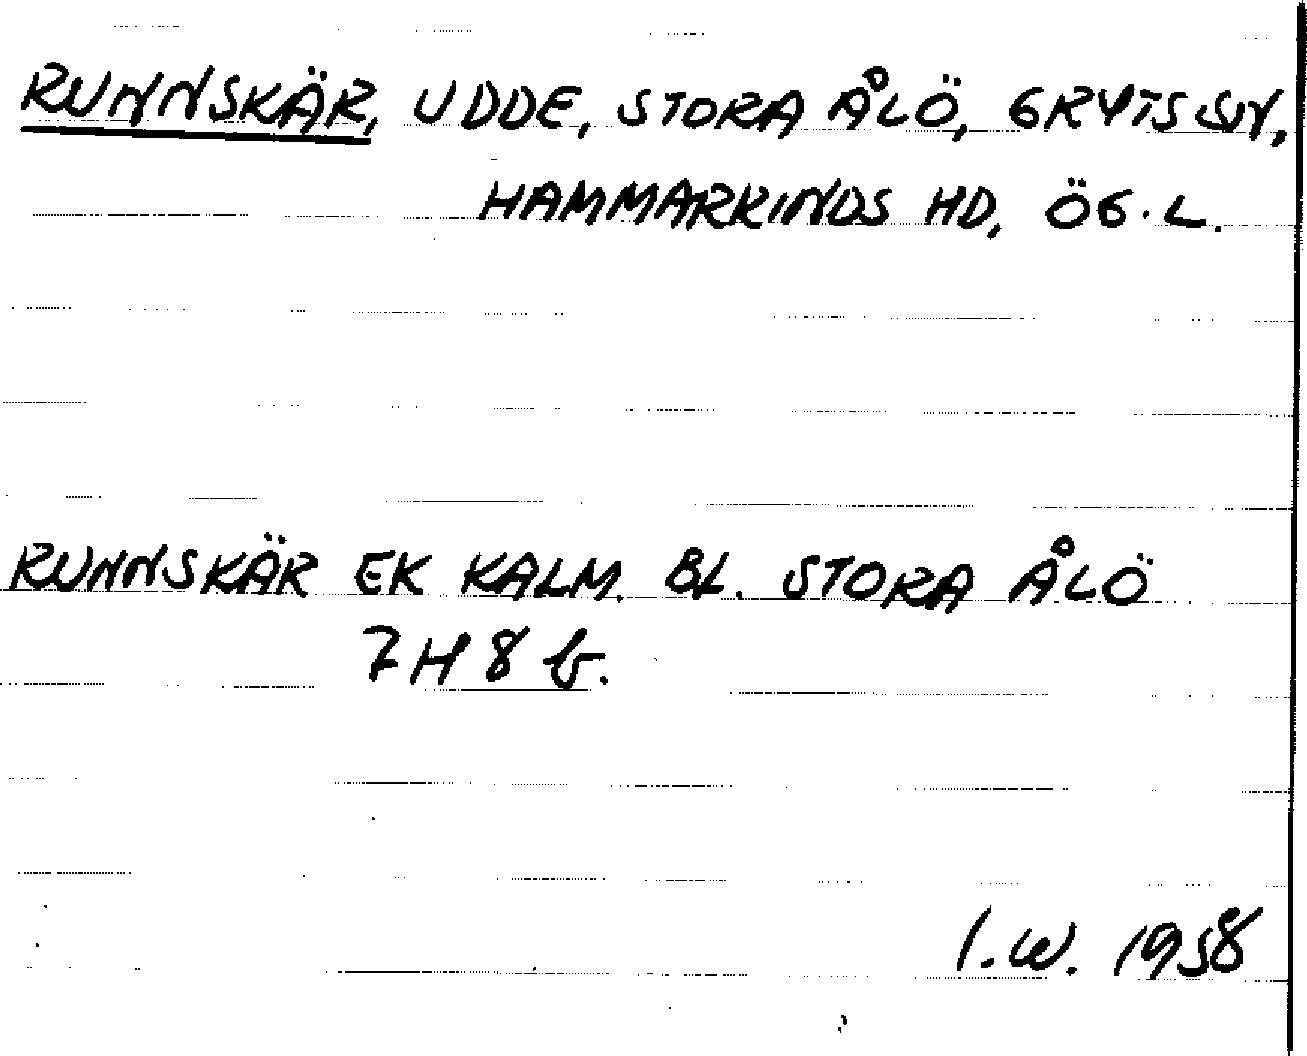 RUNNSKÄR, UDDE, STORA ÅLÖ, GRYTS SN,
HAMMARKINDS HD, ÖG.L.
RUNNSKÄR EK KALM. BL. STORA ÅLÖ
7H8b.
I.W. 1958